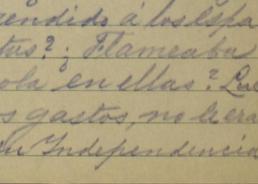 rendido á los espa
tus? ¿Flameaba
ola en ellas? Luc
s gastos, no le era
su Independencia